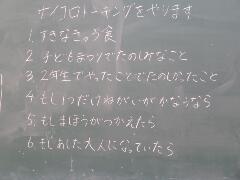 サイコロトーキングをやります
1. すきなきゅう食
2. 子どもまつりでたのしみなこと
3. 2年生でやったことでたのしかったこと
4. もし1つだけねがいがかなうなら
5. もしまほうがつかえたら
6. もしあした大人になっていたら